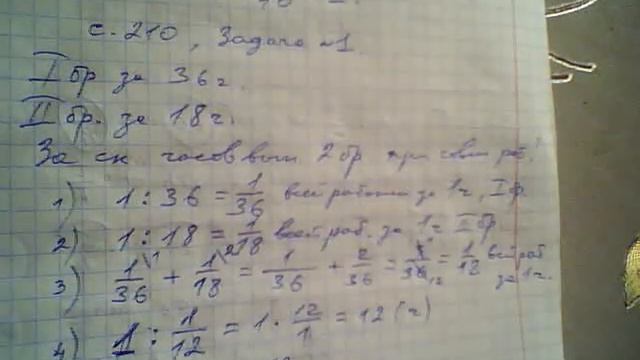 с. 210, Задача №1.
I бр за 36 ч.
II бр. за 18 ч.
За ск часов вып 2 бр при совм раб?
1) 1 : 36 = 1/36 всей работы за 1ч, I бр.
2) 1 : 18 = 1/18 всей раб. за 1ч II бр
3) 1/36 \1 + 1/18 \2 = 1/36 + 2/36 = 3/36 = 1/18 всей раб за 1ч.
4) 1 : 1/12 = 1 · 12/1 = 12 (ч)